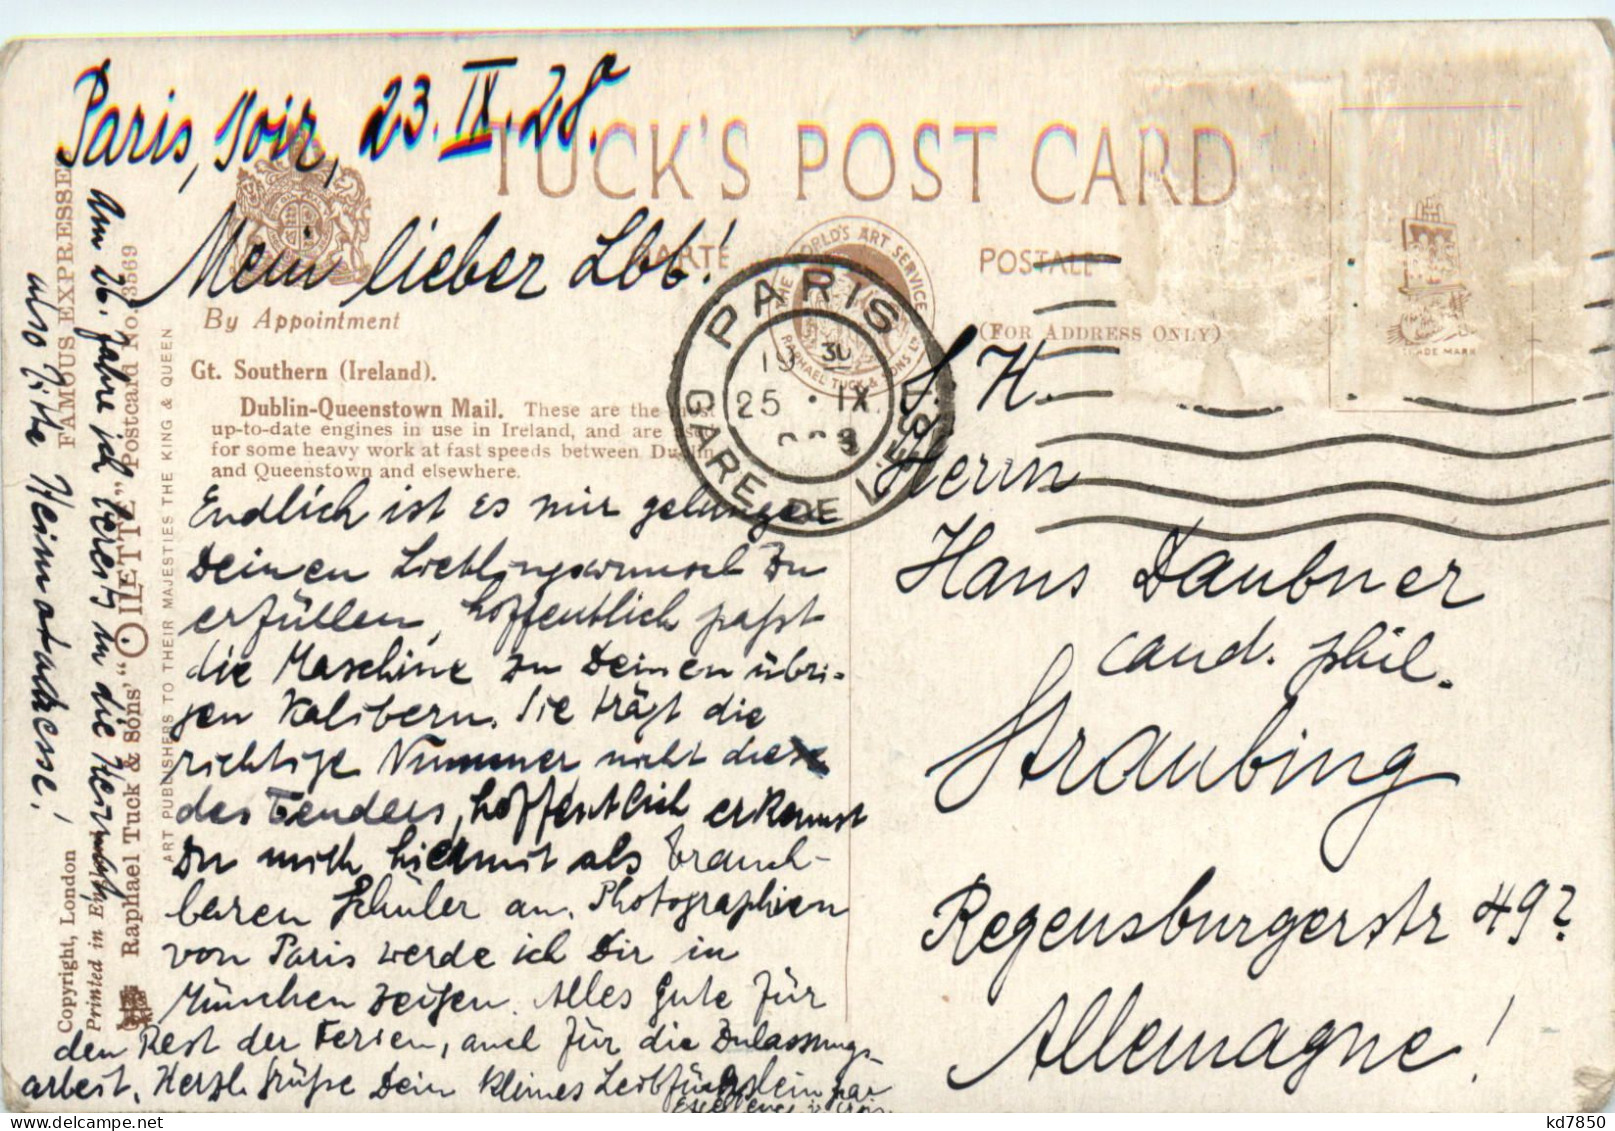 Paris, soir, 23. IX. 28.
TUCK'S POST CARD
CARTE POSTALE
(FOR ADDRESS ONLY)
THE WORLD'S ART SERVICE
RAPHAEL TUCK & SONS LTD
TRADE MARK
By Appointment
Gt. Southern (Ireland).
Dublin-Queenstown Mail. These are the most
up-to-date engines in use in Ireland, and are used
for some heavy work at fast speeds between Dublin
and Queenstown and elsewhere.
PARIS
19 30
25 . IX
GARE DE L'EST
Mein lieber Lbb!
Endlich ist es mir gelungen
Deinen Lieblingswunsch zu
erfüllen, hoffentlich paßt
die Maschine zu Deinen übri-
gen Kalibern. Sie trägt die
richtige Nummer nicht die
des Tenders, hoffentlich erkennst
Du mich hiermit als brauch-
baren Schüler an. Photographien
von Paris werde ich Dir in
München zeigen. Alles Gute für
den Rest der Ferien, auch für die Zulassungs-
arbeit. Herzl. Grüße Dein kleines Leibfüchslein par
Am 26. fahre ich bereits in die
also bitte Heimatadresse!
S. H.
Herrn
Hans Daubner
cand. phil.
Straubing
Regensburgerstr 49?
Allemagne!
FAMOUS EXPRESSES
Raphael Tuck & Sons' "OILETTE" Postcard No. 3569
ART PUBLISHERS TO THEIR MAJESTIES THE KING & QUEEN
Copyright, London
Printed in
kd7850